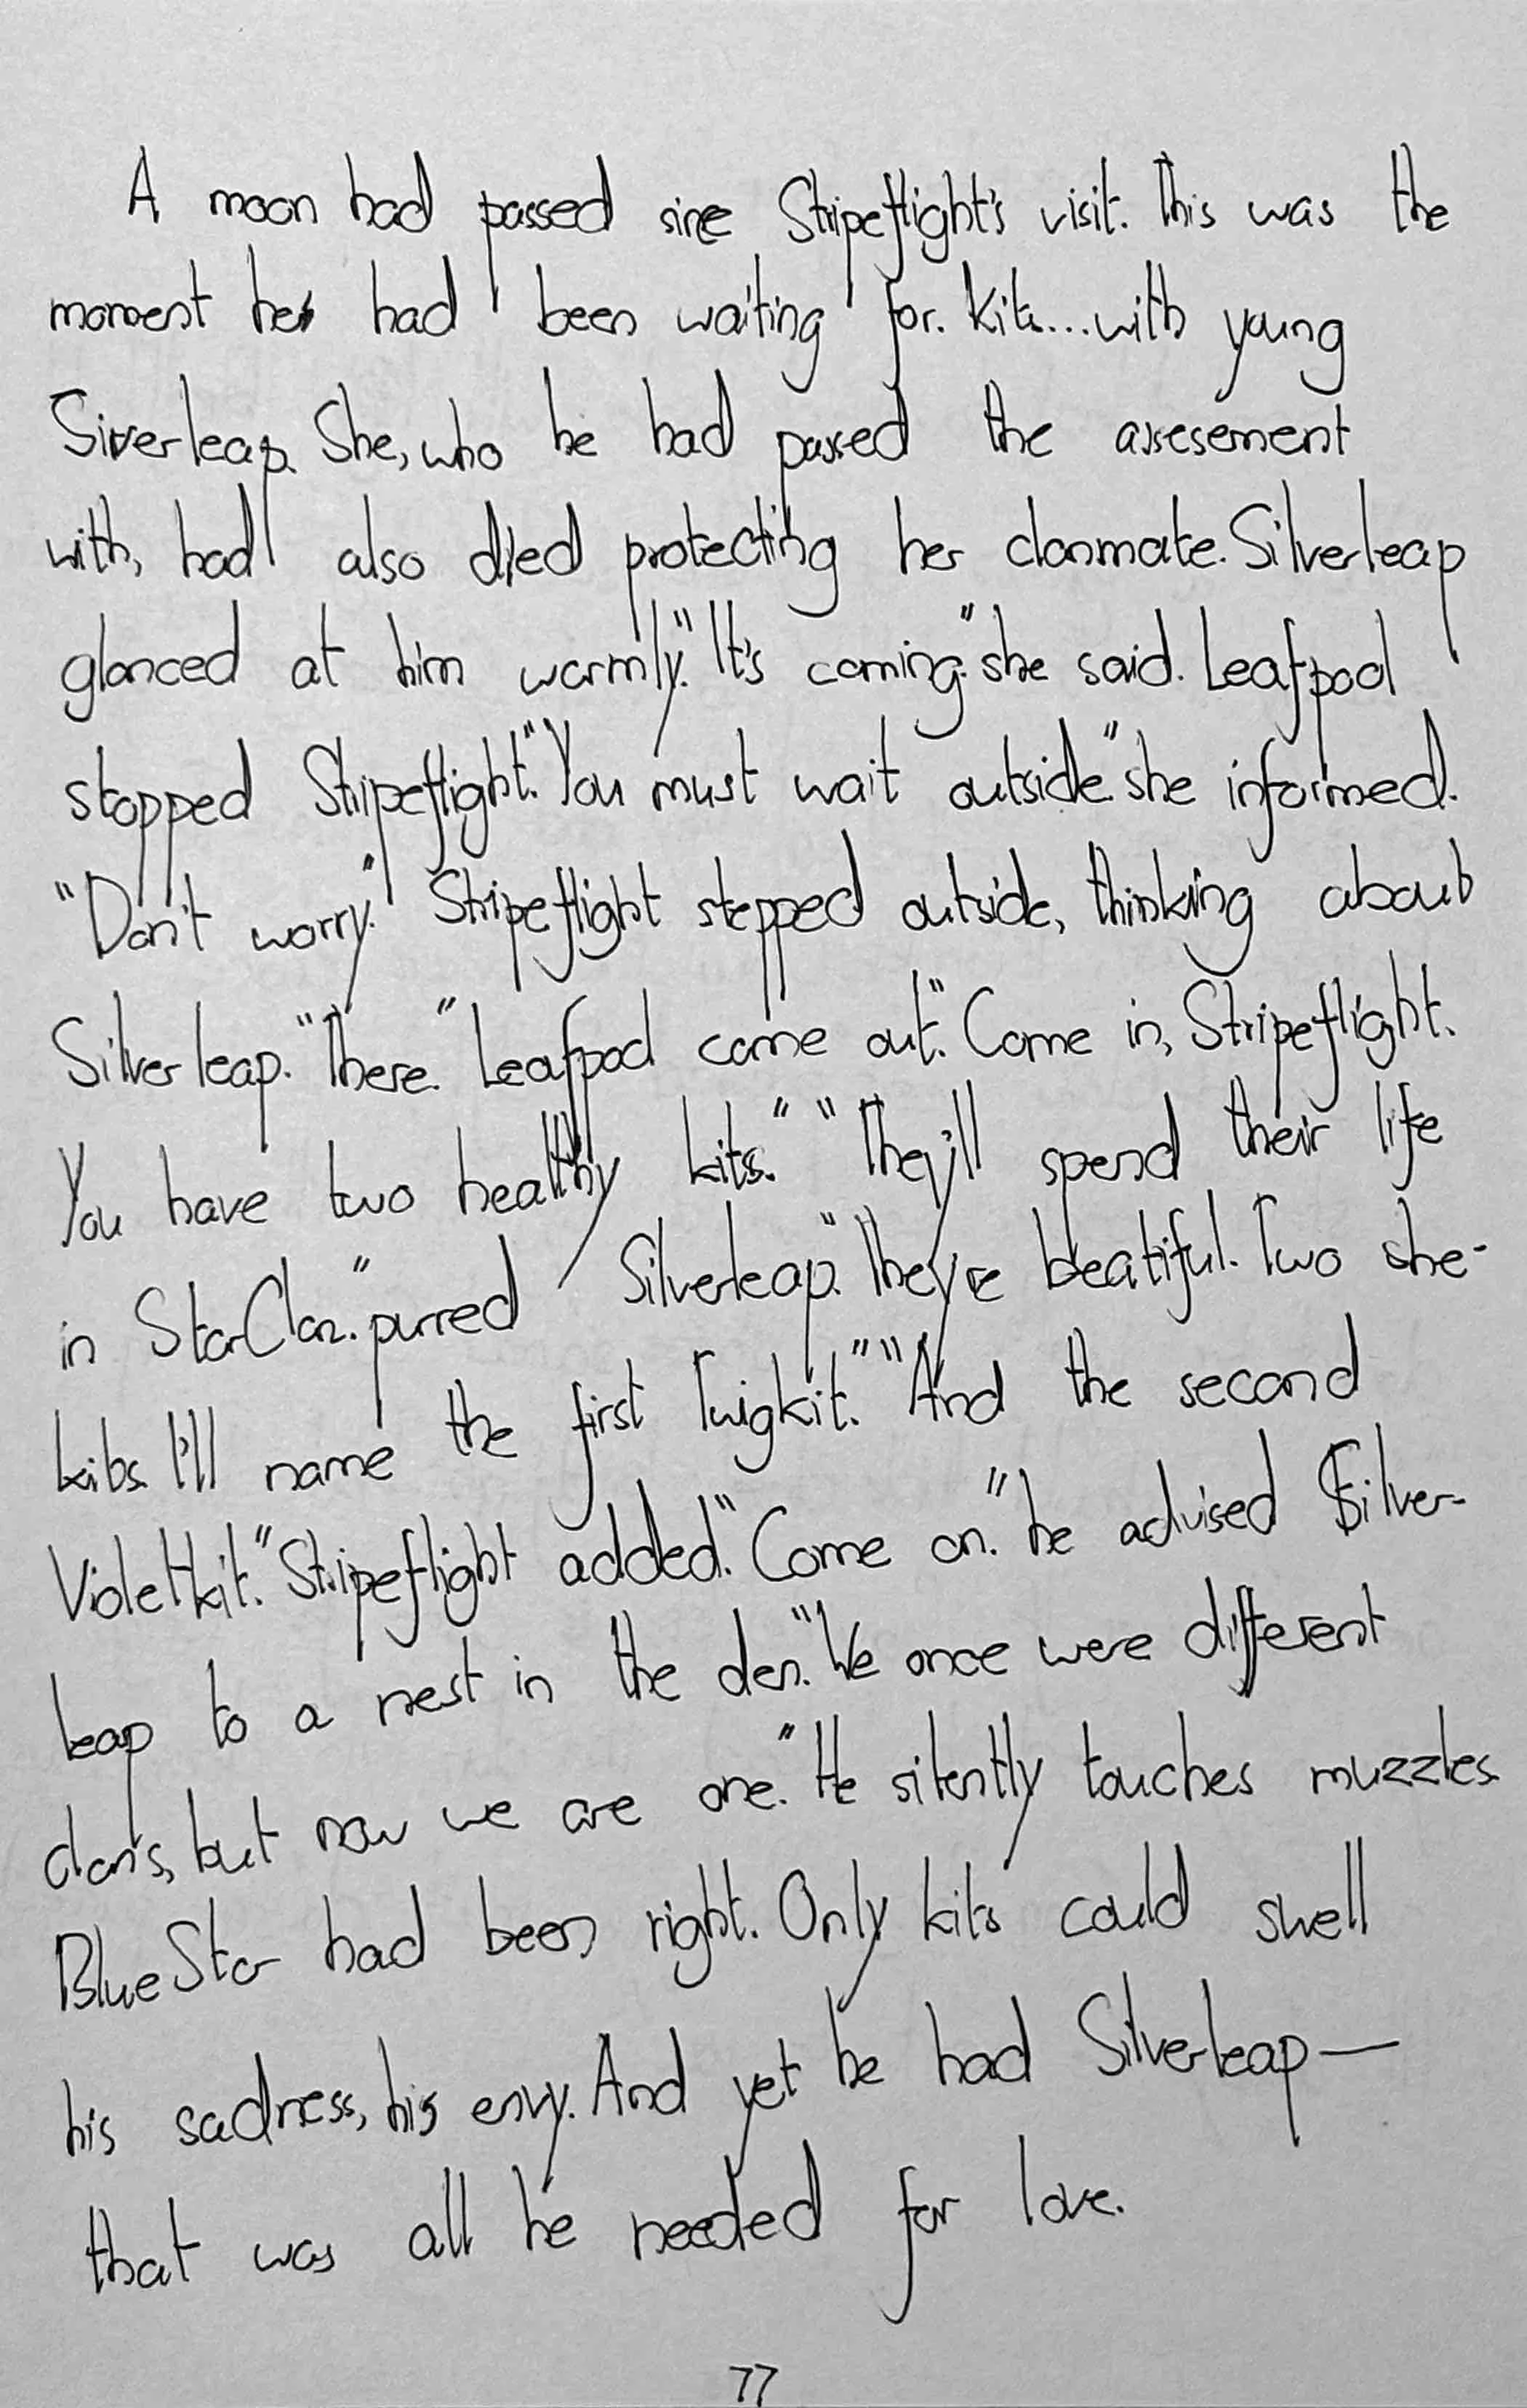 A moon had passed sine Stripeflight's visit. This was the
moment he had been waiting for. Kits...with young
Siverleap. She, who he had passed the assesement
with, had also died protecting her clanmate. Silverleap
glanced at him warmly. "It's coming." she said. Leafpool
stopped Stripeflight. "You must wait outside." she informed.
"Don't worry." Stripeflight stepped outside, thinking about
Silverleap. "There." Leafpool came out. "Come in, Stripeflight.
You have two healthy kits." "They'll spend their life
in StarClan." purred Silverleap. "They're beatiful. Two she-
kits. I'll name the first Twigkit." "And the second
Violetkit." Stripeflight added. "Come on." he advised Silver-
leap to a nest in the den. "We once were different
clans, but now we are one." He silently touches muzzles.
BlueStar had been right. Only kits could swell
his sadness, his envy. And yet he had Silverleap—
that was all he needed for love.
77